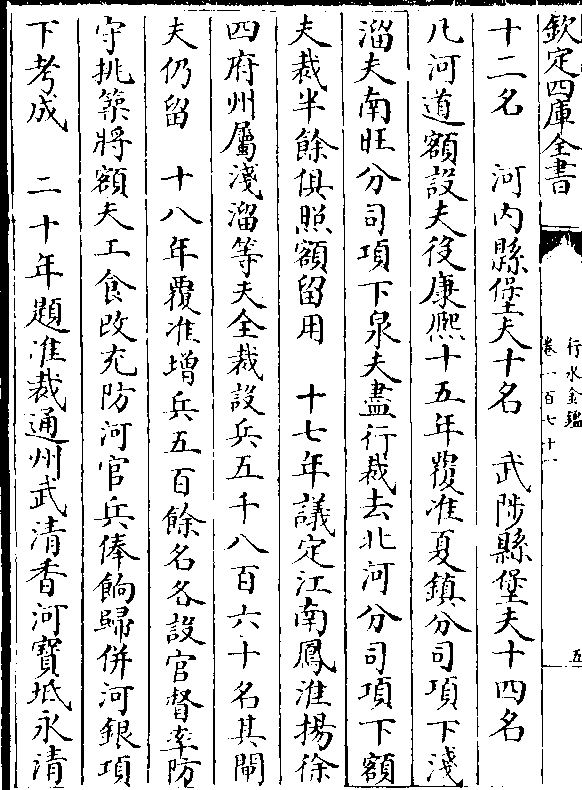 欽定四庫全書
行水金鑑
卷一百七十一
五
十二名　河内縣堡夫十名　武陟縣堡夫十四名
凡河道額設夫役康熈十五年覆准夏鎮分司項下淺
溜夫南旺分司項下泉夫盡行裁去北河分司項下額
夫裁半餘俱照額留用　十七年議定江南鳳淮揚徐
四府州屬淺溜等夫全裁設兵五千八百六十名其閘
夫仍留　十八年覆准增兵五百餘名各設官督率防
守挑築將額夫工食改充防河官兵俸餉歸併河銀項
下考成　二十年題准裁通州武清香河寶坻永清